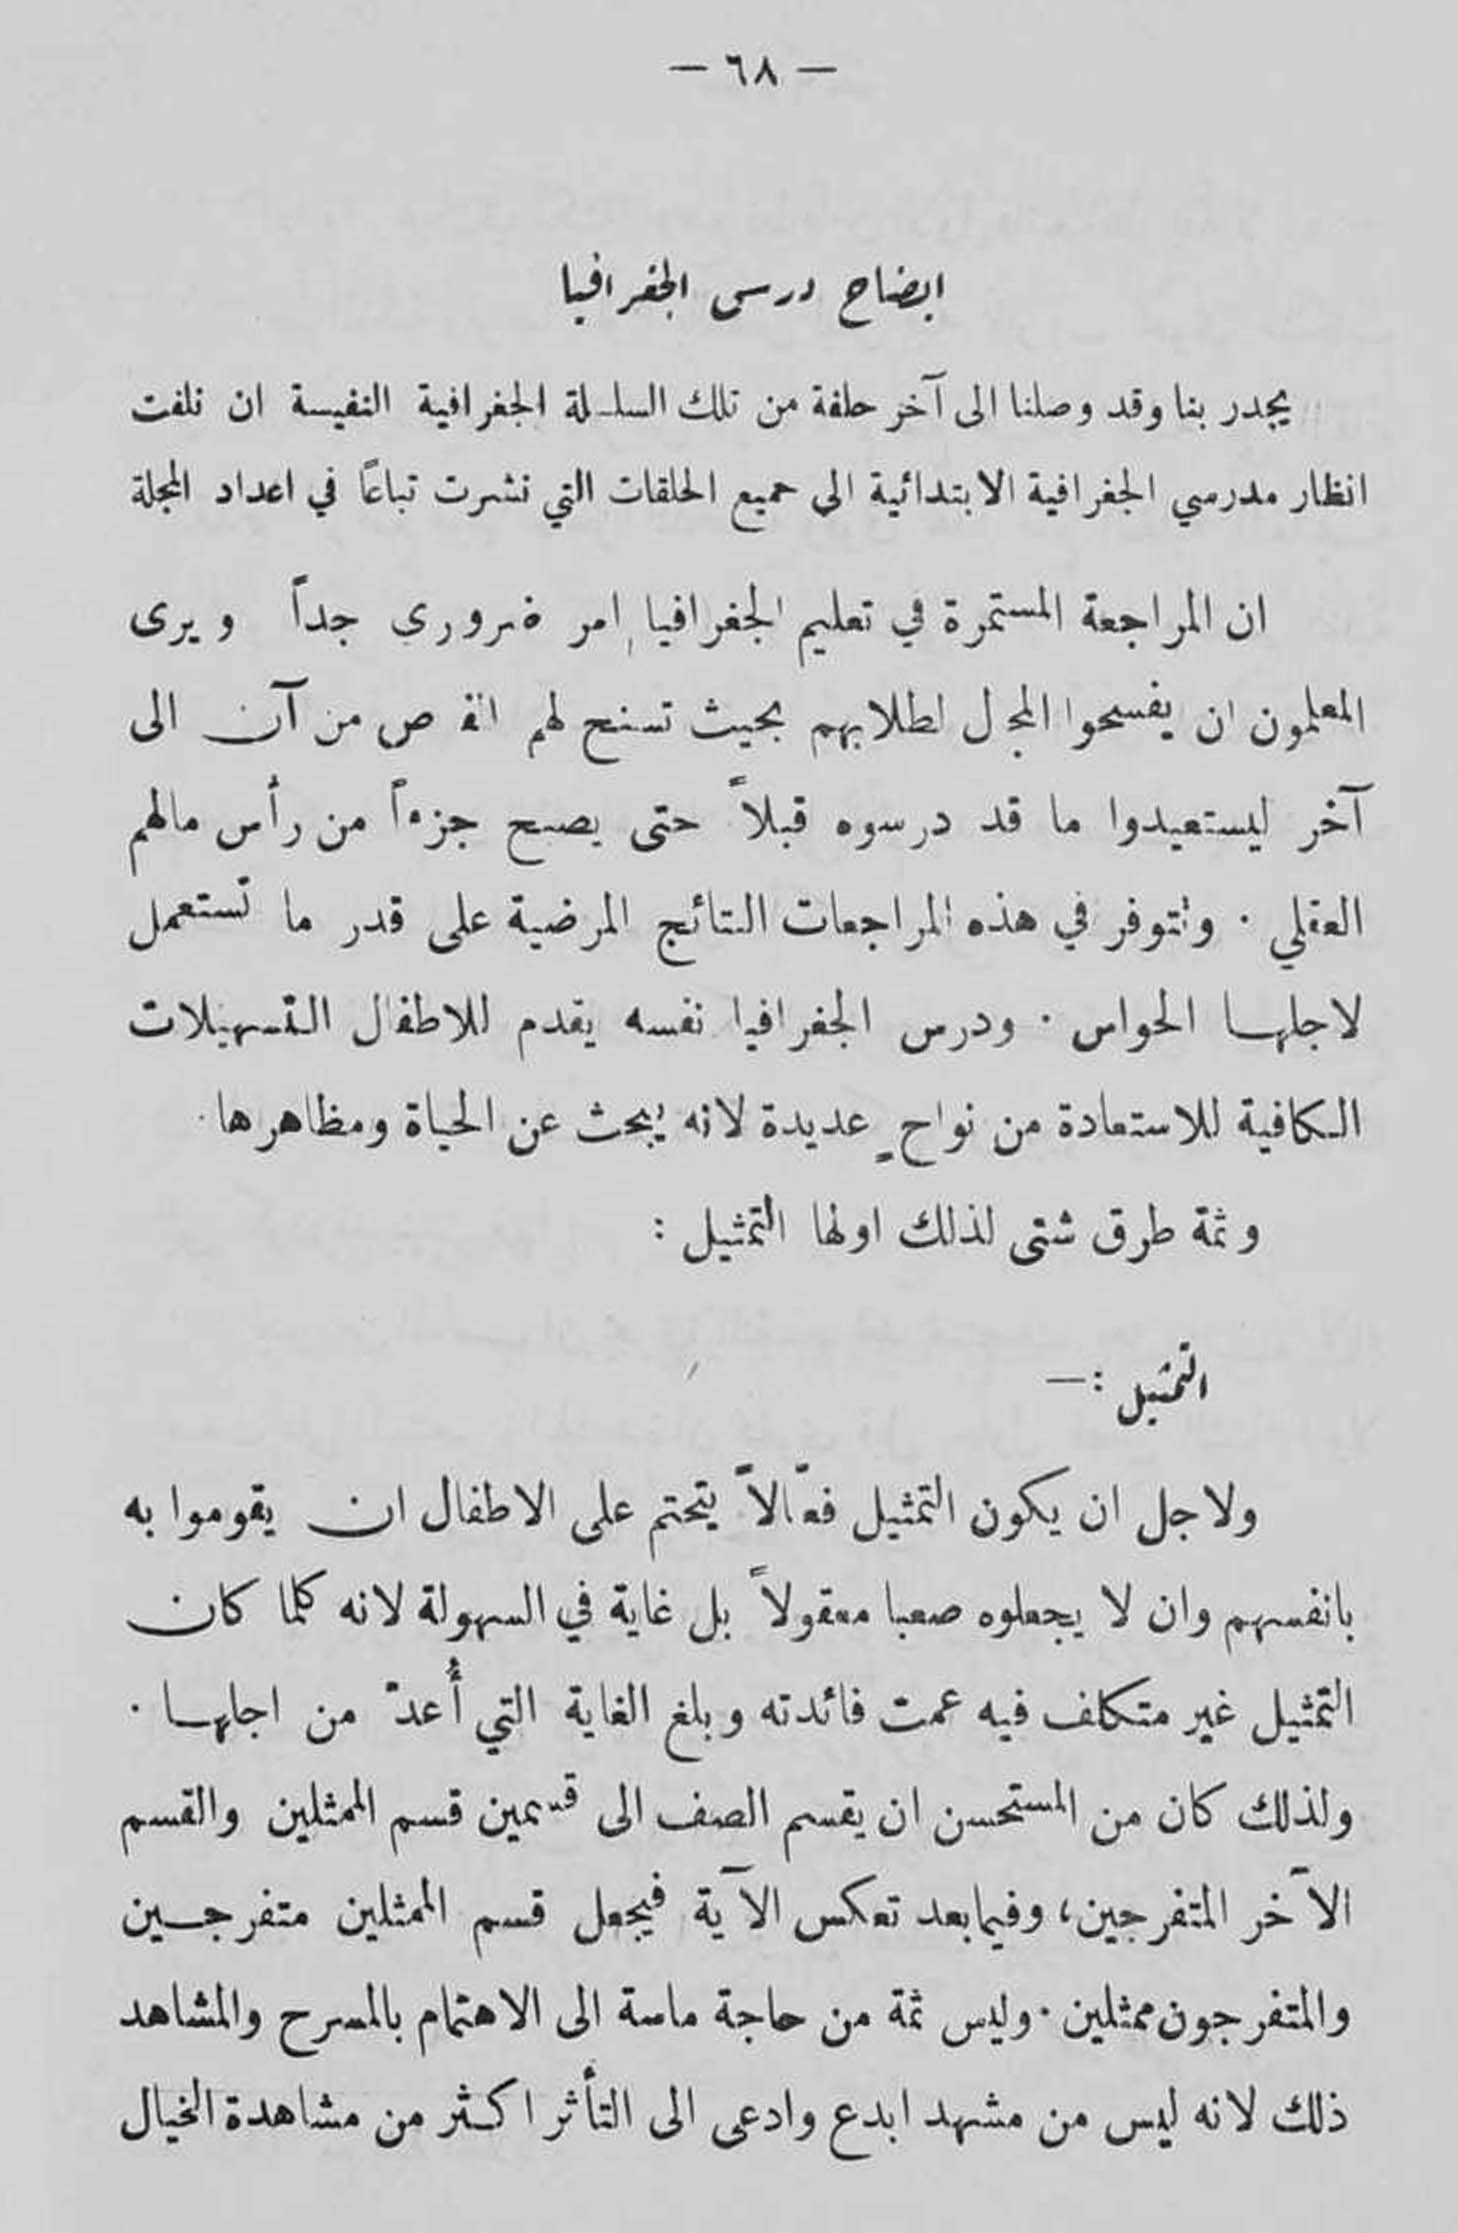 — ٦٨ —
ايضاح درس الجغرافيا
يجدر بنا وقد وصلنا الى آخر حلقة من تلك السلسلة الجغرافية النفيسة ان نلفت
انظار مدرسي الجغرافية الابتدائية الى جميع الحلقات التي نشرت تباعاً في اعداد المجلة
ان المراجعة المستمرة في تعليم الجغرافيا امر ضروري جداً ويرى
المعلمون ان يفسحوا المجال لطلابهم بحيث تسنح لهم الفرص من آن الى
آخر ليستعيدوا ما قد درسوه قبلاً حتى يصبح جزءاً من رأس مالهم
العقلي . وتتوفر في هذه المراجعات النتائج المرضية على قدر ما تستعمل
لاجلها الحواس . ودرس الجغرافيا نفسه يقدم للاطفال التسهيلات
الكافية للاستعادة من نواحٍ عديدة لانه يبحث عن الحياة ومظاهرها .
وثمة طرق شتى لذلك اولها التمثيل :
التمثيل : —
ولاجل ان يكون التمثيل فعّالاً يتحتم على الاطفال ان يقوموا به
بانفسهم وان لا يجعلوه صعبا معقولاً بل غاية في السهولة لانه كلما كان
التمثيل غير متكلف فيه عمت فائدته وبلغ الغاية التي أُعدّ من اجلها .
ولذلك كان من المستحسن ان يقسم الصف الى قسمين قسم الممثلين والقسم
الآخر المتفرجين، وفيما بعد تعكس الآية فيجعل قسم الممثلين متفرجين
والمتفرجون ممثلين . وليس ثمة من حاجة ماسة الى الاهتمام بالمسرح والمشاهد
ذلك لانه ليس من مشهد ابدع وادعى الى التأثر اكثر من مشاهدة الخيال